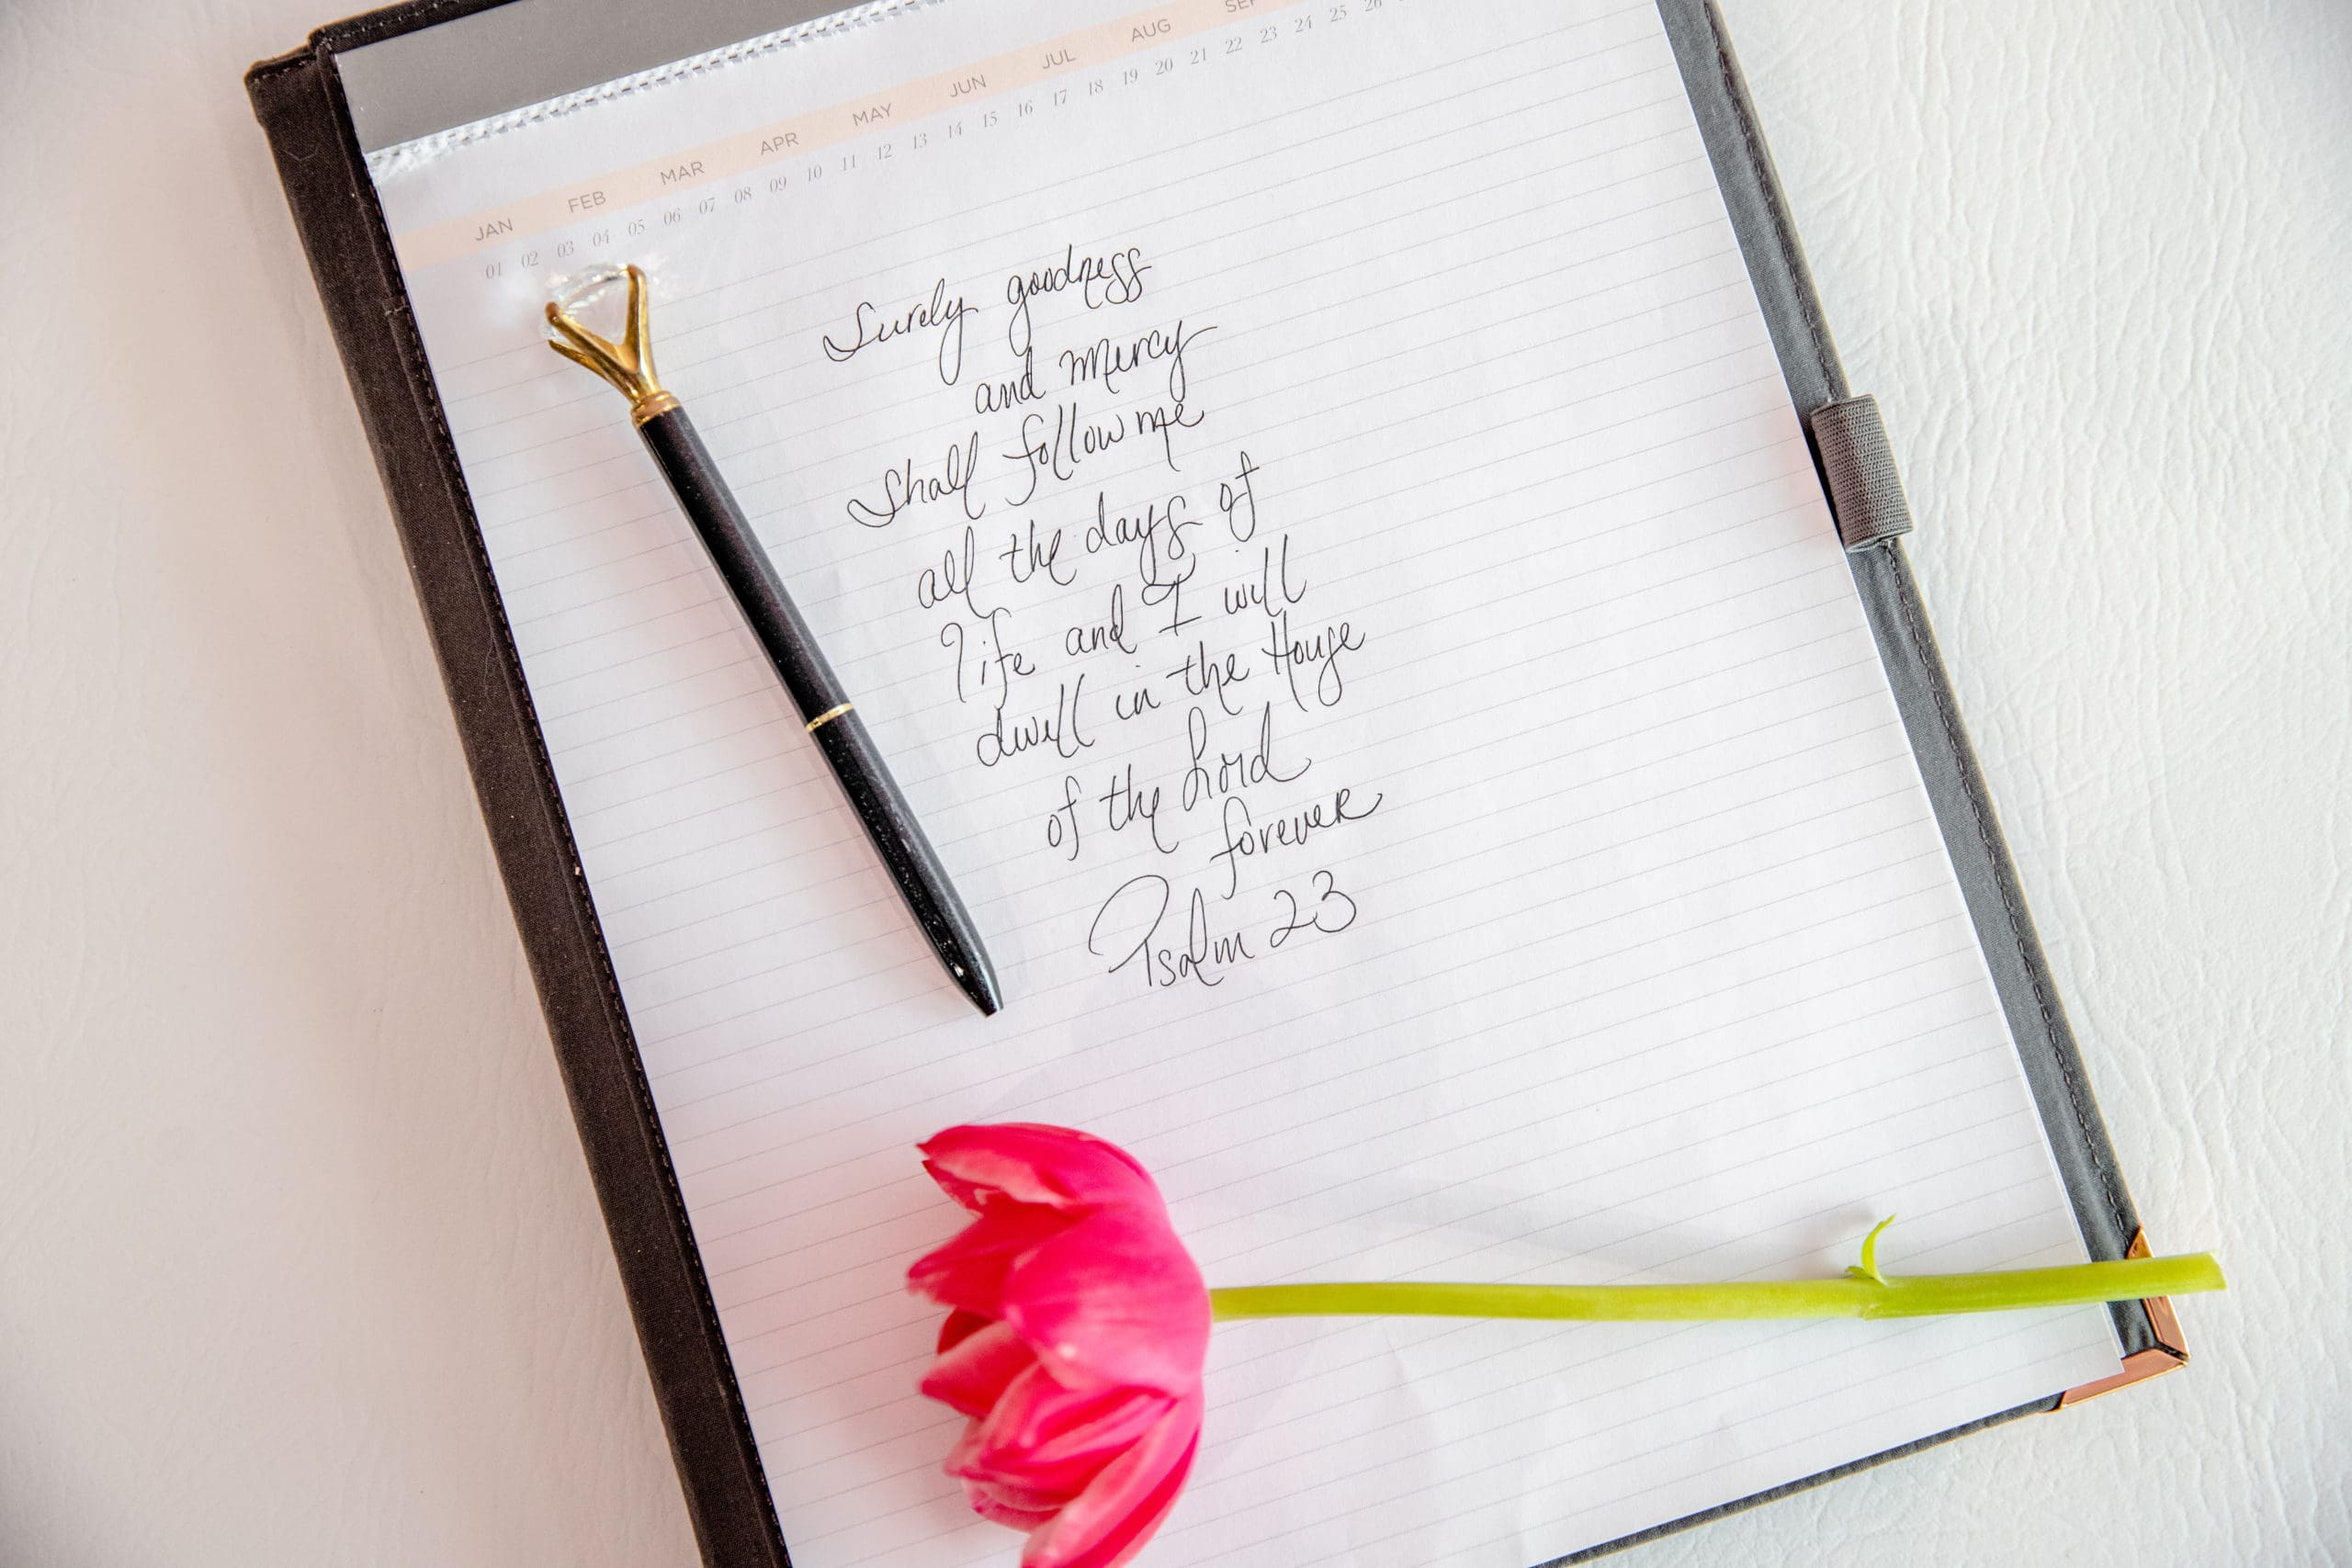 JAN FEB MAR APR MAY JUN JUL AUG
01 02 03 04 05 06 07 08 09 10 11 12 13 14 15 16 17 18 19 20 21 22 23 24 25 26
Surely goodness
and mercy
shall follow me
all the days of
life and I will
dwell in the House
of the Lord
forever
Psalm 23